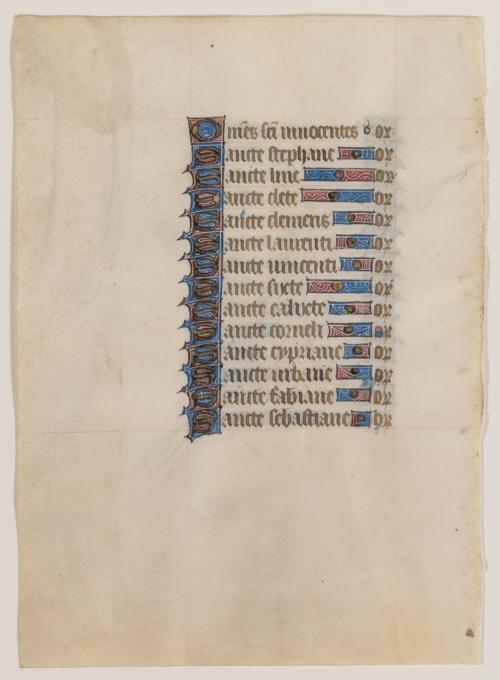 Omnes sci innocentes or
Sancte stephane or
Sancte line or
Sancte clete or
Sancte clemens or
Sancte laurenti or
Sancte uincenti or
Sancte sixte or
Sancte calixte or
Sancte corneli or
Sancte cypriane or
Sancte urbane or
Sancte fabiane or
Sancte sebastiane or